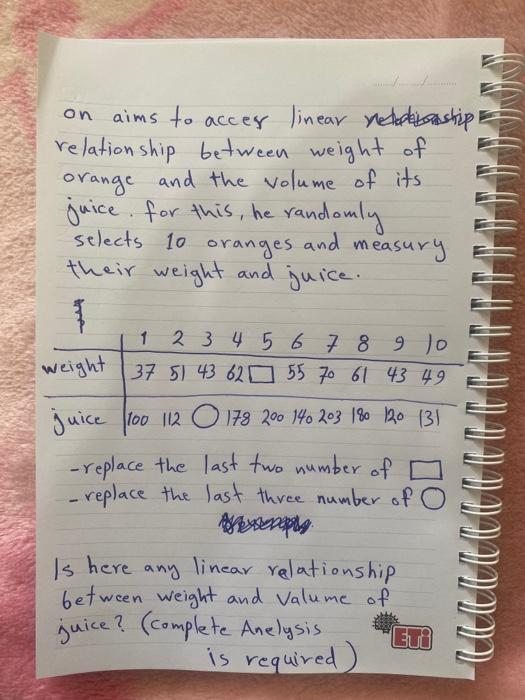 on aims to acces linear
relationship between weight of
orange and the volume of its
juice. for this, he randomly
selects 10 oranges and measury
their weight and juice.
1 2 3 4 5 6 7 8 9 10
weight 37 51 43 62 □ 55 70 61 43 49
juice 100 112 ○ 178 200 140 203 180 120 131
- replace the last two number of □
- replace the last three number of ○
Is here any linear relationship
between weight and Valume of
juice? (complete Anelysis
is required)
ETi